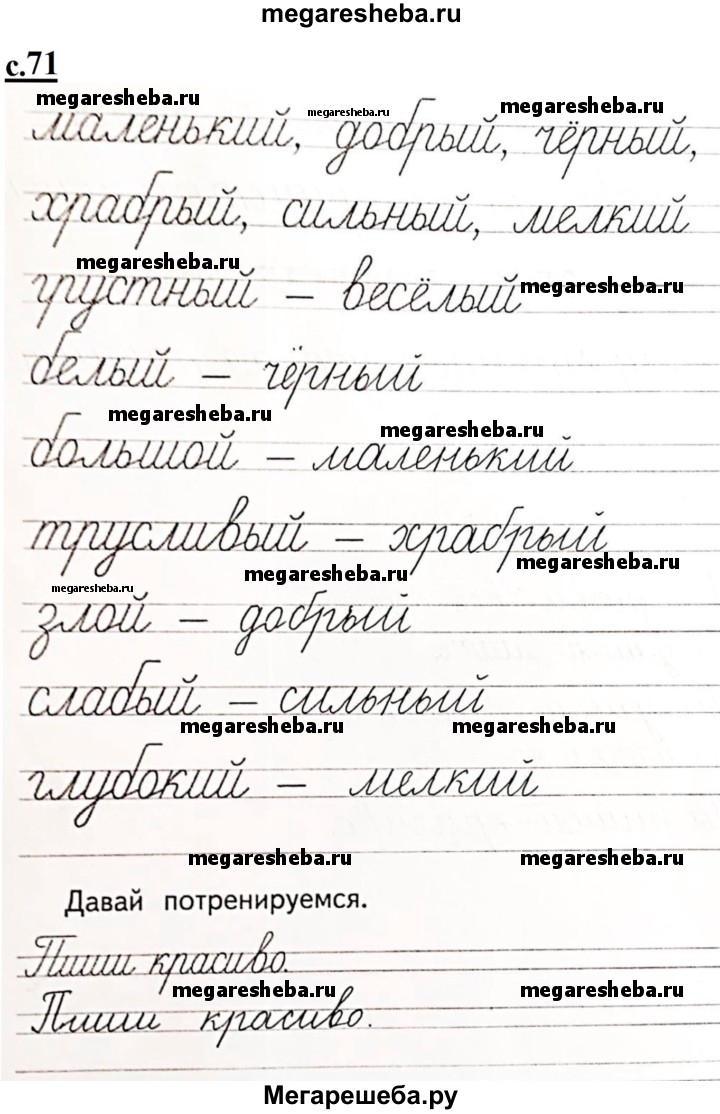 megaresheba.ru
с.71
megaresheba.ru megaresheba.ru megaresheba.ru
маленький, добрый, чёрный,
храбрый, сильный, мелкий
megaresheba.ru megaresheba.ru
грустный – весёлый
белый – чёрный
megaresheba.ru megaresheba.ru
большой – маленький
трусливый – храбрый
megaresheba.ru megaresheba.ru megaresheba.ru
злой – добрый
слабый – сильный
megaresheba.ru megaresheba.ru
глубокий – мелкий
megaresheba.ru megaresheba.ru
Давай потренируемся.
Пиши красиво.
megaresheba.ru megaresheba.ru
Пиши красиво.
Мегарешеба.ру